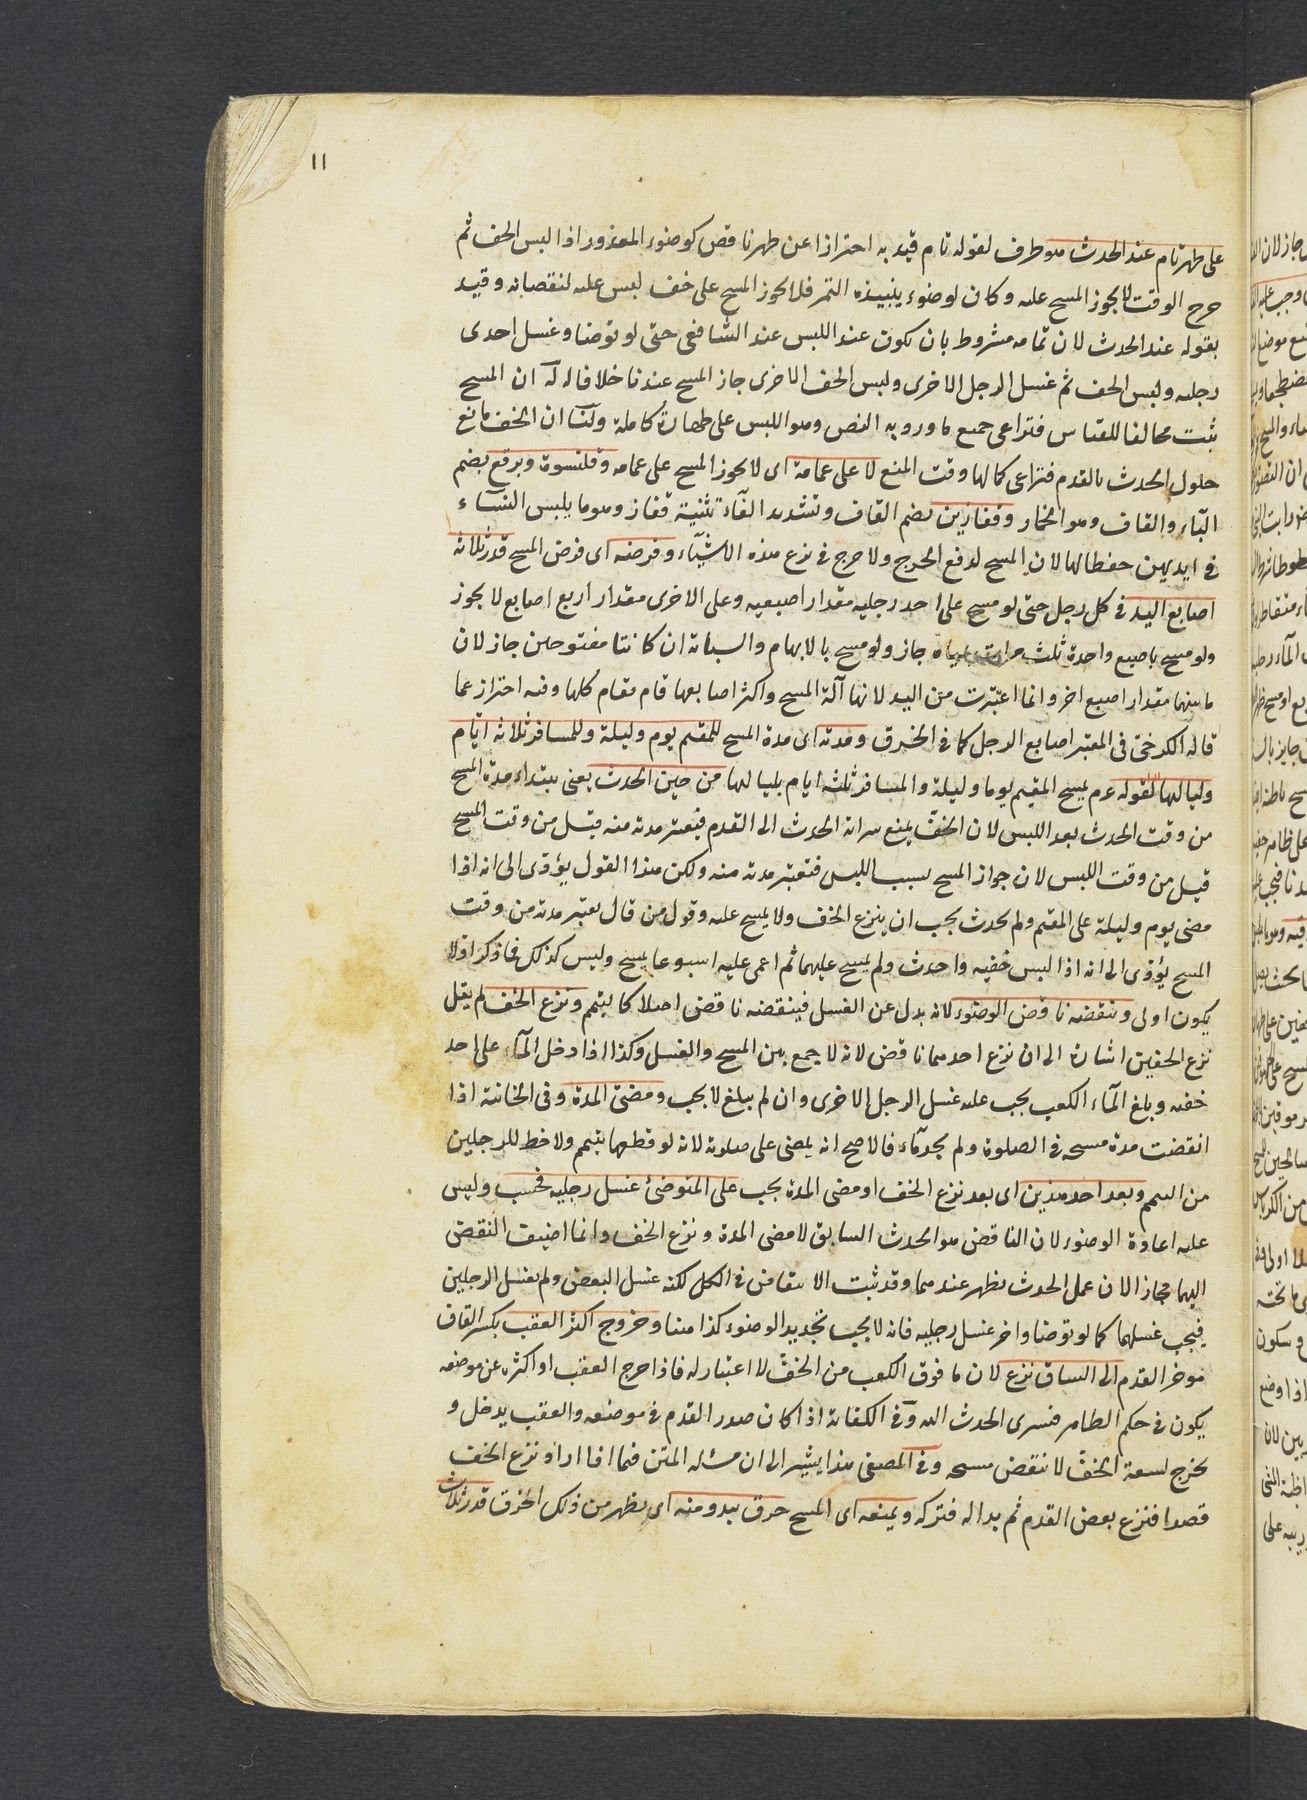 ١١
على طهر تام عند الحدث هو ظرف لقوله تام قيد به احترازا عن طهر ناقص كوضوء المعذور اذا لبس الخف ثم
خرج الوقت لا يجوز المسح عليه وكان لو ضوء ينبيذه التمر فلا يجوز المسح على خف لبس عليه لنقصانه وقيد
بقوله عند الحدث لان تمامه مشروط بان يكون عند اللبس عند الشافعى حتى لو توضا وغسل احدى
رجليه ولبس الخف ثم غسل الرجل الاخرى ولبس الخف الاخرى جاز المسح عندنا خلافا له لَه ان المسح
ثبت مخالفا للقياس فتراعى جميع ما ورد به النص وهو اللبس على طهارة كاملة ولنا ان الخف مانع
حلول الحدث بالقدم فتراعى كمالها وقت المنع لا على عمامة اى لا يجوز المسح على عمامه وقلنسوة وبرقع بضم
الباء والقاف وهو الخمار وقفازين بضم القاف وتشديد الفاء تثنية قفاز وهو ما يلبس النساء
فى ايديهن حفظا لها لان المسح لدفع الحرج ولا حرج فى نزع هذه الاشياء وفرضه اى فرض المسح قدر ثلاثة
اصابع اليد فى كل رجل حتى لو مسح على احد رجليه مقدار اصبعيه وعلى الاخرى مقدار اربع اصابع لا يجوز
ولو مسح باصبع واحدة ثلث مرات بمياه جاز ولو مسح بالابهام والسبابة ان كانتا مفتوحتين جاز لان
ما بينهما مقدار اصبع اخر وانما اعتبرت من اليد لانها آلة المسح واكثر اصابعها قام مقام كلها وفيه احتراز عما
قاله الكرخى فى المعتبر اصابع الرجل كما فى الخرق ومدته اى مدة المسح للمقيم يوم وليلة وللمسافر ثلاثة ايام
ولياليها لقوله عم يمسح المقيم يوما وليلة والمسافر ثلثه ايام بلياليها من حين الحدث يعنى يبتداء مدة المسح
من وقت الحدث بعد اللبس لان الخف يمنع سراية الحدث الى القدم فيعتبر مدته منه قيل من وقت المسح
قيل من وقت اللبس لان جواز المسح بسبب اللبس فتعتبر مدته منه ولكن هذا القول يؤدى الى انه اذا
مضى يوم وليلة على المقيم ولم يحدث يجب ان ينزع الخف ولا يمسح عليه وقول من قال يعتبر مدته من وقت
المسح يؤدى الى انه اذا لبس خفيه واحدث ولم يمسح عليهما ثم اغمى عليه اسبوعا يمسح وليس كذلك فما ذكر اولا
يكون اولى وينقضه ناقض الوضوء لانه بدل عن الغسل فينقضه ناقض اصلا كالتيمم ونزع الخف لم يقل
نزع الخفين اشارة الى ان نزع احدهما ناقض لانه لا جمع بين المسح والغسل وكذا اذا دخل الماء على احد
خفيه وبلغ الماء الكعب يجب عليه غسل الرجل الاخرى وان لم يبلغ لا يجب ومضى المدة وفى الخانية اذا
انقضت مدة مسحه فى الصلوة ولم يجد ماء فالاصح انه يمضى على صلوته لانه لو قطعها يتيمم ولا حظ للرجلين
من التيمم وبعد احد هذين اى بعد نزع الخف او مضى المدة يجب على المتوضئ غسل رجليه فحسب وليس
عليه اعادة الوضوء لان الناقض هو الحدث السابق لا مضى المدة ونزع الخف وانما اضيف النقض
اليهما مجازا لان عمل الحدث يظهر عندهما وقد ثبت الانتقاض فى الكل لكنه غسل البعض ولم يغسل الرجلين
فيجب غسلهما كما لو توضا واخر غسل رجليه فانه لا يجب تجديد الوضوء كذا هنا وخروج اكثر العقب بكسر القاف
موخر القدم الى الساق نزع لان ما فوق الكعب من الخف لا اعتبار له فاذا خرج العقب او اكثره عن موضعه
يكون فى حكم الظاهر فيسرى الحدث اليه وفى الكفاية اذا كان صدر القدم فى موضعه والعقب يدخل و
يخرج لسعة الخف لا ينقض مسحه وفى المصفى هذا يشير الى ان مسئله المتن فيما اذا اراد نزع الخف
قصدا فنزع بعض القدم ثم بدا له فتركه ويمنعه اى المسح خرق يبدو منه اى يظهر من ذلك الخرق قدر ثلاث